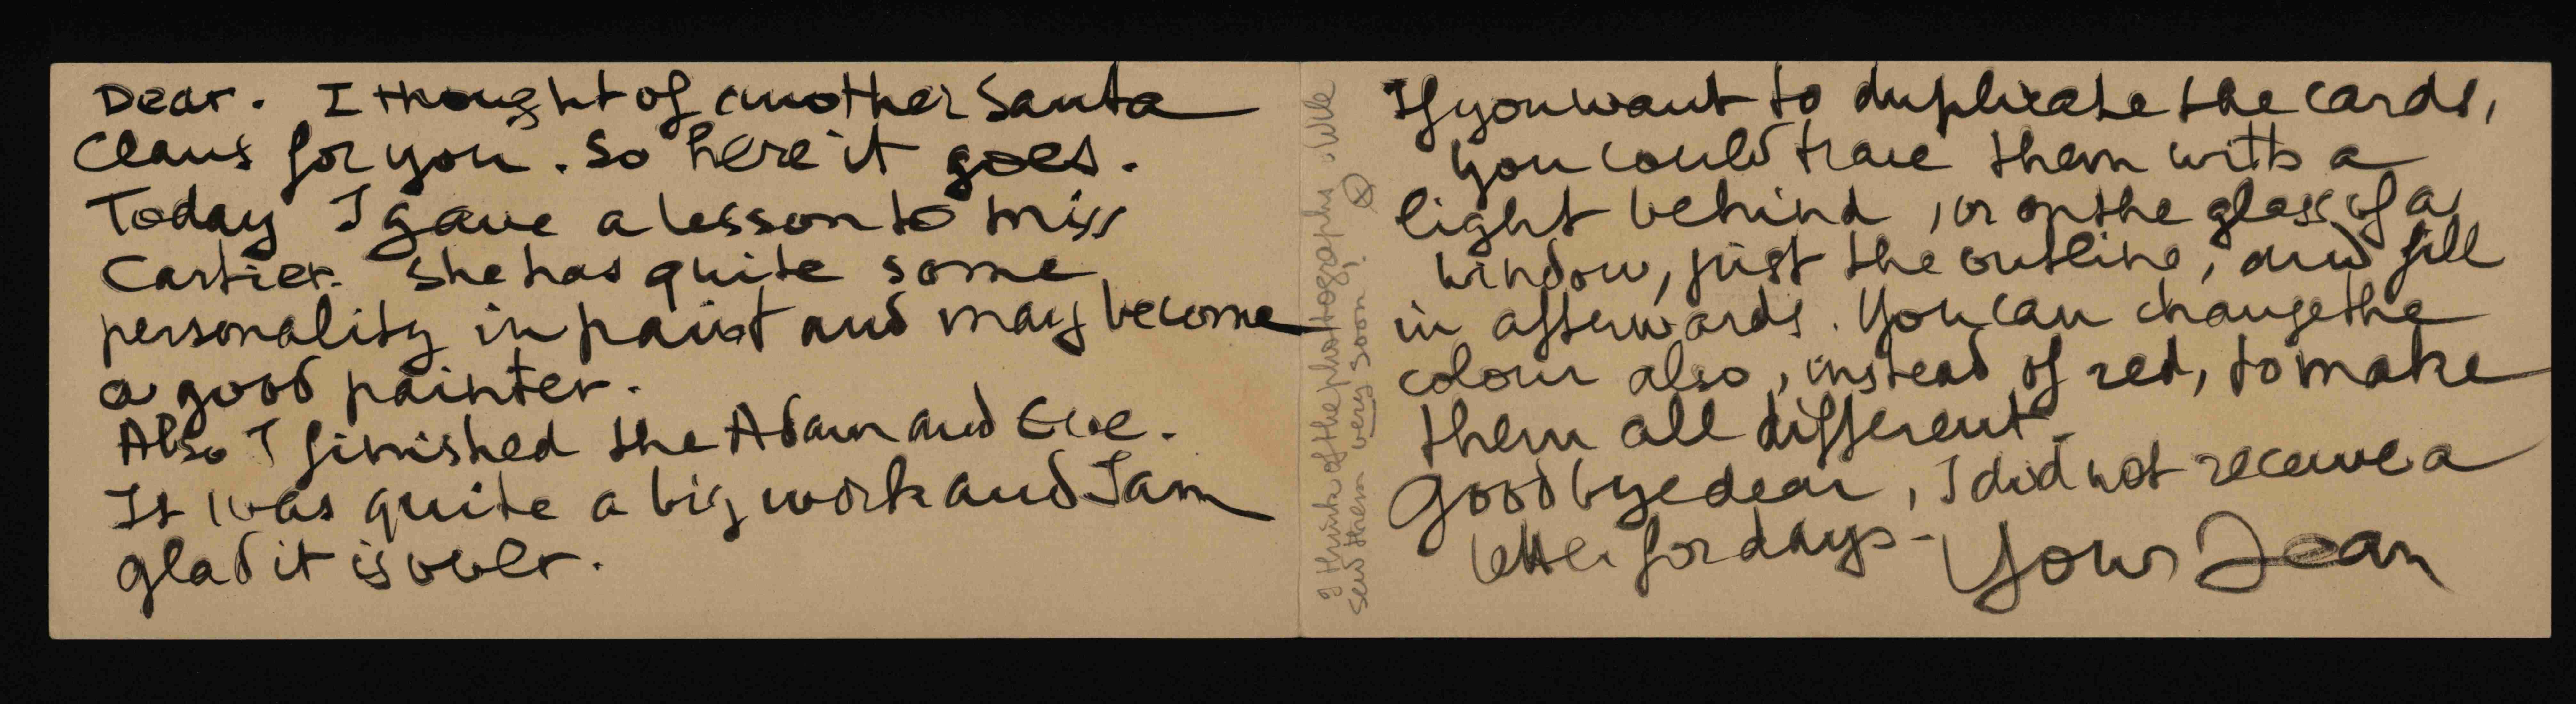 Dear. I thought of another Santa
Claus for you. So here it goes.
Today I gave a lesson to miss
Cartier. She has quite some
personality in paint and may become
a good painter.
Also I finished the Adam and Eve.
It was quite a big work and I am
glad it is over.
I think of the photography. Will
send them very soon.
If you want to duplicate the cards,
you could trace them with a
light behind, or on the glass of a
window, just the outline, and fill
in afterwards. You can change the
colour also, instead of red, to make
them all different.
Good bye dear, I did not receive a
letter for days -
Your Jean